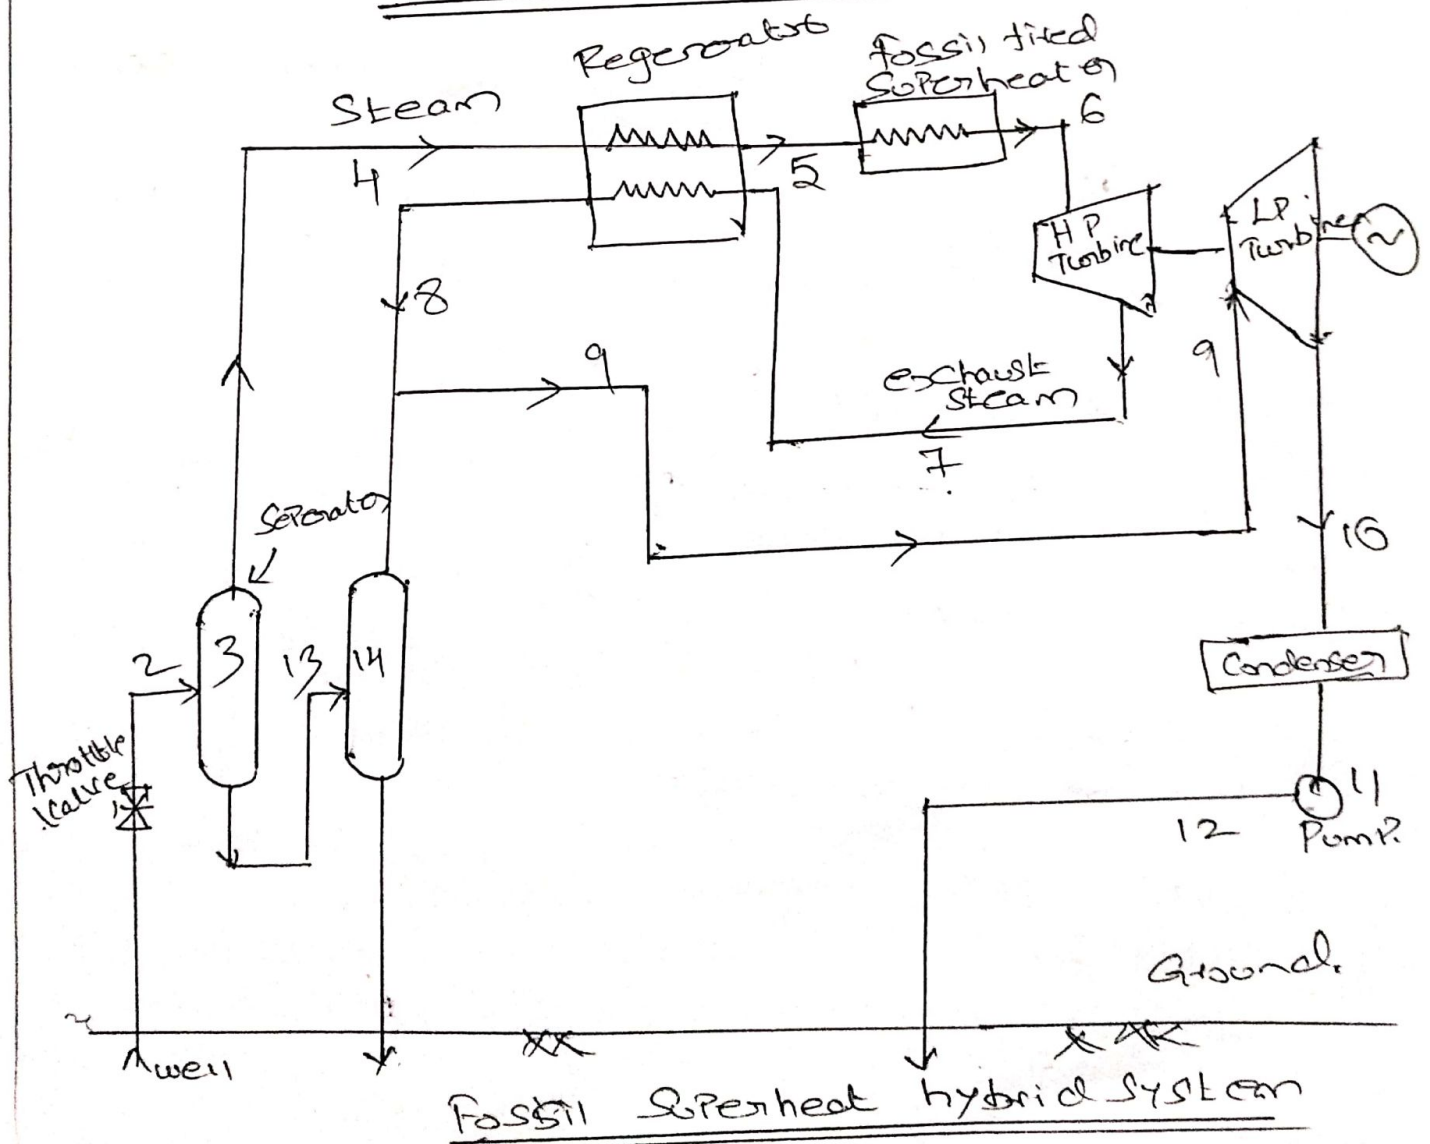 Regenerator
Fossil fired
Superheater
Steam
4
5
6
HP
Turbine
LP
Turbine
~
8
9
exhaust
steam
7
9
10
Separator
2
3
13
14
Throttle
Valve
1
Condenser
11
12
Pump.
Ground.
well
Fossil Superheat hybrid system